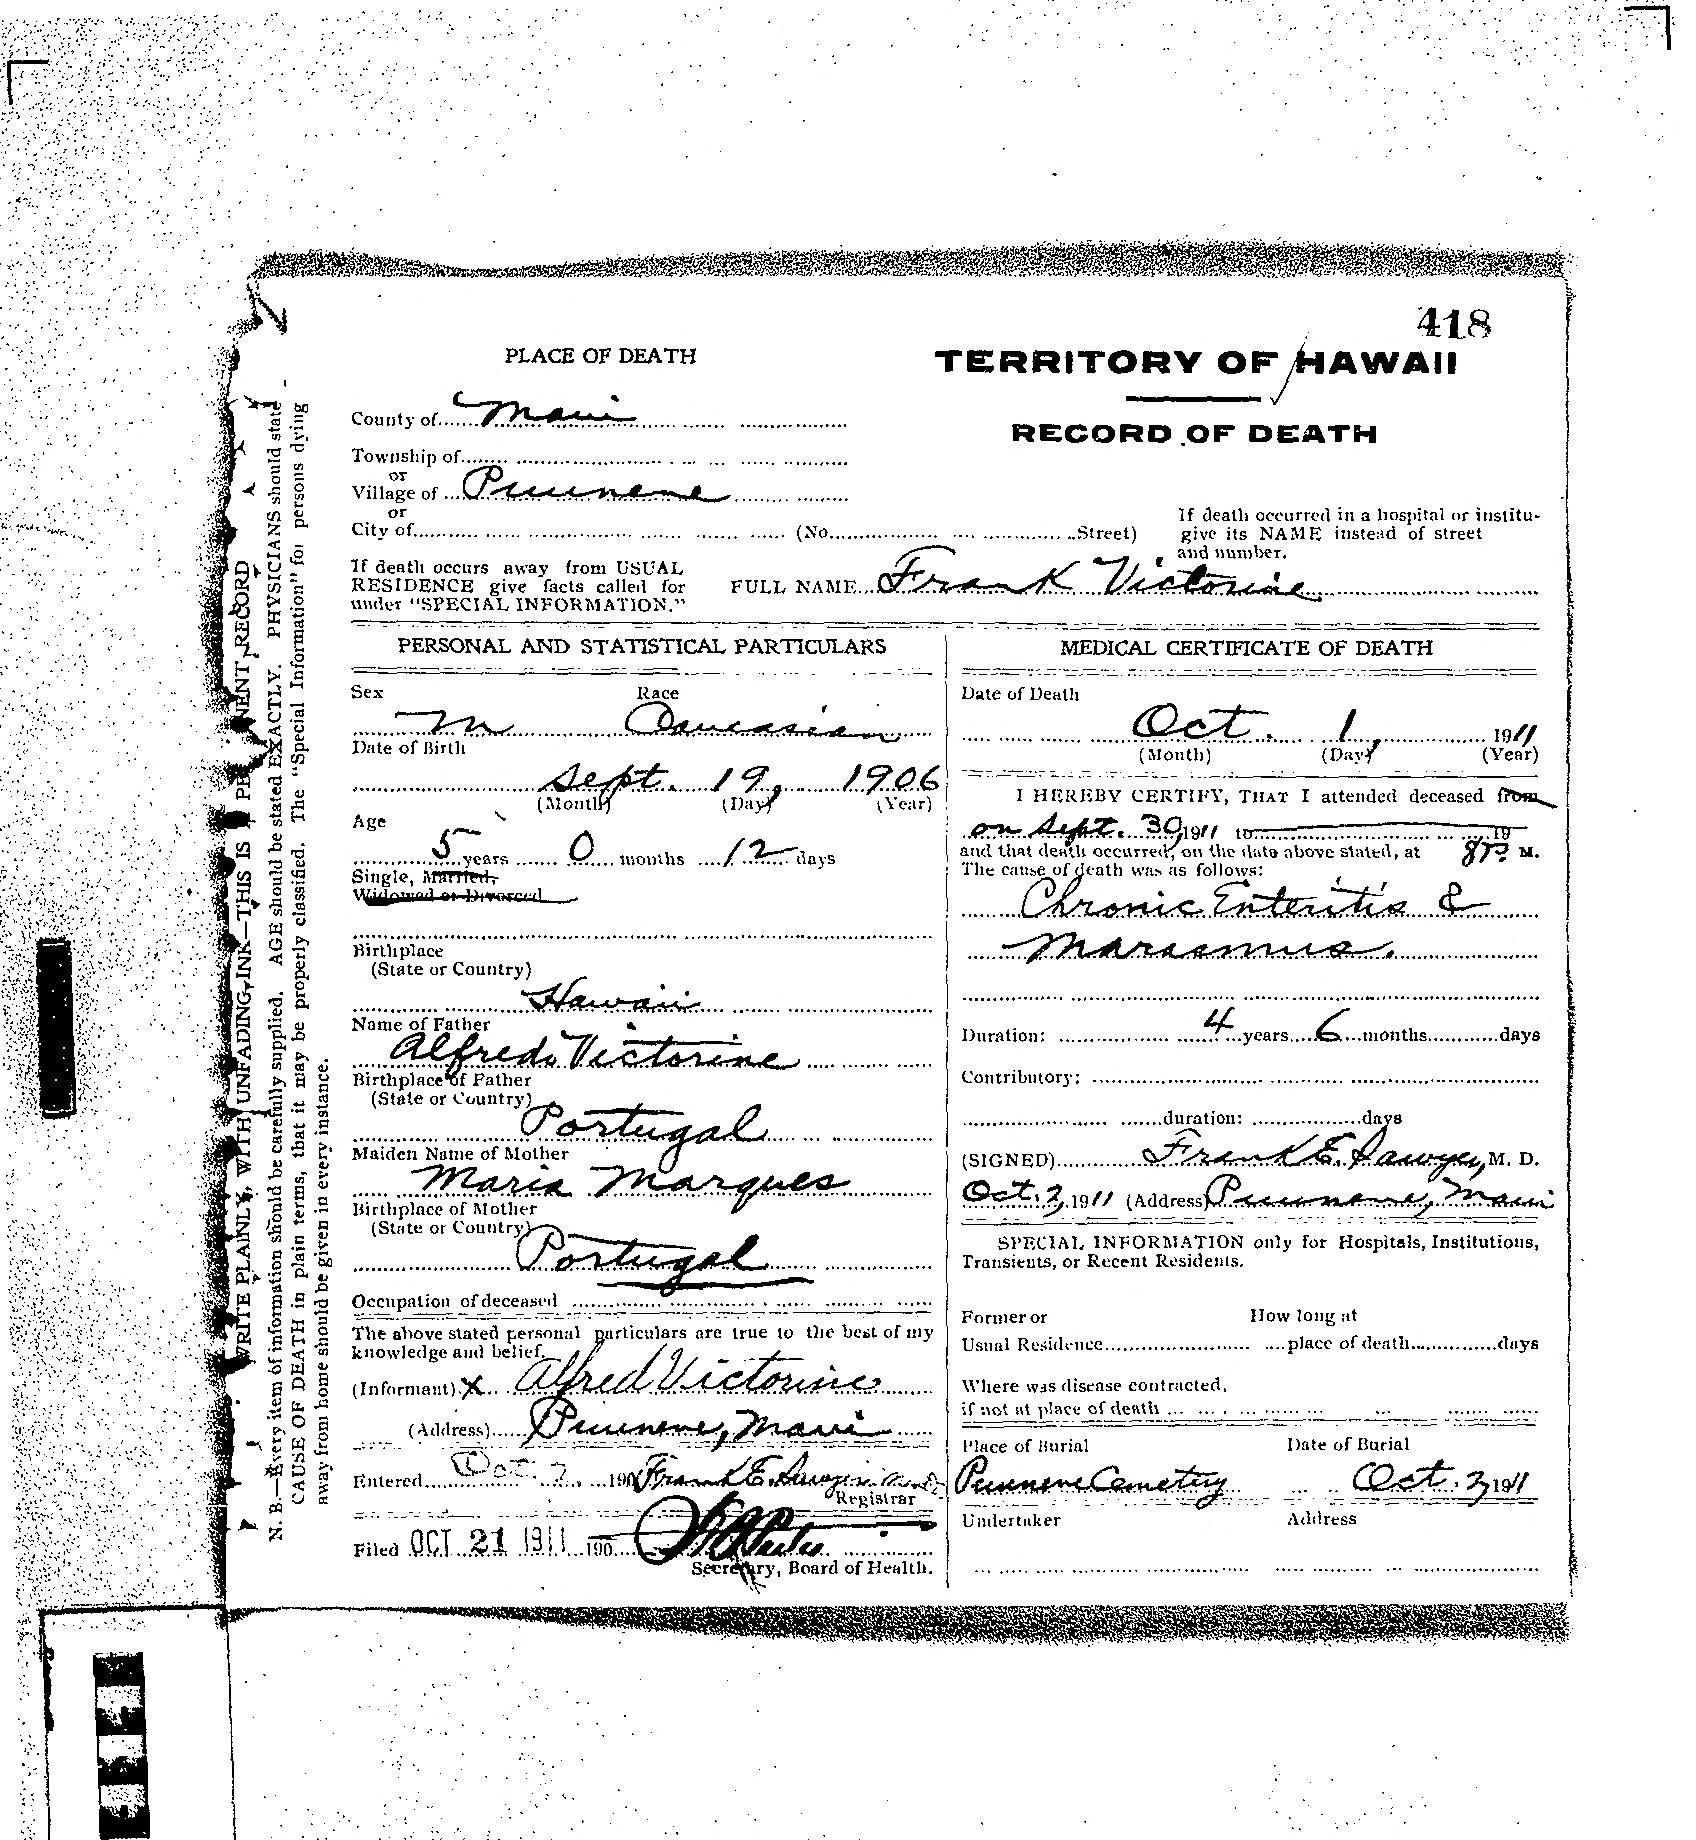 418
PLACE OF DEATH
TERRITORY OF HAWAII
RECORD OF DEATH
County of Maui
Township of
or
Village of Puunene
or
City of (No. Street)
If death occurred in a hospital or institu-
give its NAME instead of street
and number.
If death occurs away from USUAL
RESIDENCE give facts called for
under "SPECIAL INFORMATION."
FULL NAME Frank Victorine
PERSONAL AND STATISTICAL PARTICULARS
Sex Race
M Caucasian
Date of Birth
Sept. 19, 1906
(Month) (Day) (Year)
Age
5 years 0 months 12 days
Single, Married,
Widowed or Divorced
Birthplace
(State or Country)
Hawaii
Name of Father
Alfredo Victorine
Birthplace of Father
(State or Country)
Portugal
Maiden Name of Mother
Maria Marques
Birthplace of Mother
(State or Country)
Portugal
Occupation of deceased
The above stated personal particulars are true to the best of my
knowledge and belief.
(Informant) X Alfred Victorine
(Address) Puunene, Maui
Entered Oct. 2, 190 Frank E. Sawyer M.D.
Registrar
Filed OCT 21 1911 190
Secretary, Board of Health.
MEDICAL CERTIFICATE OF DEATH
Date of Death
Oct. 1, 1911
(Month) (Day) (Year)
I HEREBY CERTIFY, THAT I attended deceased from
on Sept. 30, 1911 to 19
and that death occurred, on the date above stated, at 8 P M.
The cause of death was as follows:
Chronic Enteritis &
Marasmus.
Duration: 4 years 6 months days
Contributory:
duration: days
(SIGNED) Frank E. Sawyer, M. D.
Oct. 2, 1911 (Address) Puunene, Maui
SPECIAL INFORMATION only for Hospitals, Institutions,
Transients, or Recent Residents.
Former or How long at
Usual Residence place of death days
Where was disease contracted,
if not at place of death
Place of Burial Date of Burial
Puunene Cemetery Oct. 2, 1911
Undertaker Address
WRITE PLAINLY, WITH UNFADING INK—THIS IS PE NENT RECORD
N. B.—Every item of information should be carefully supplied. AGE should be stated EXACTLY. PHYSICIANS should state
CAUSE OF DEATH in plain terms, that it may be properly classified. The "Special Information" for persons dying
away from home should be given in every instance.